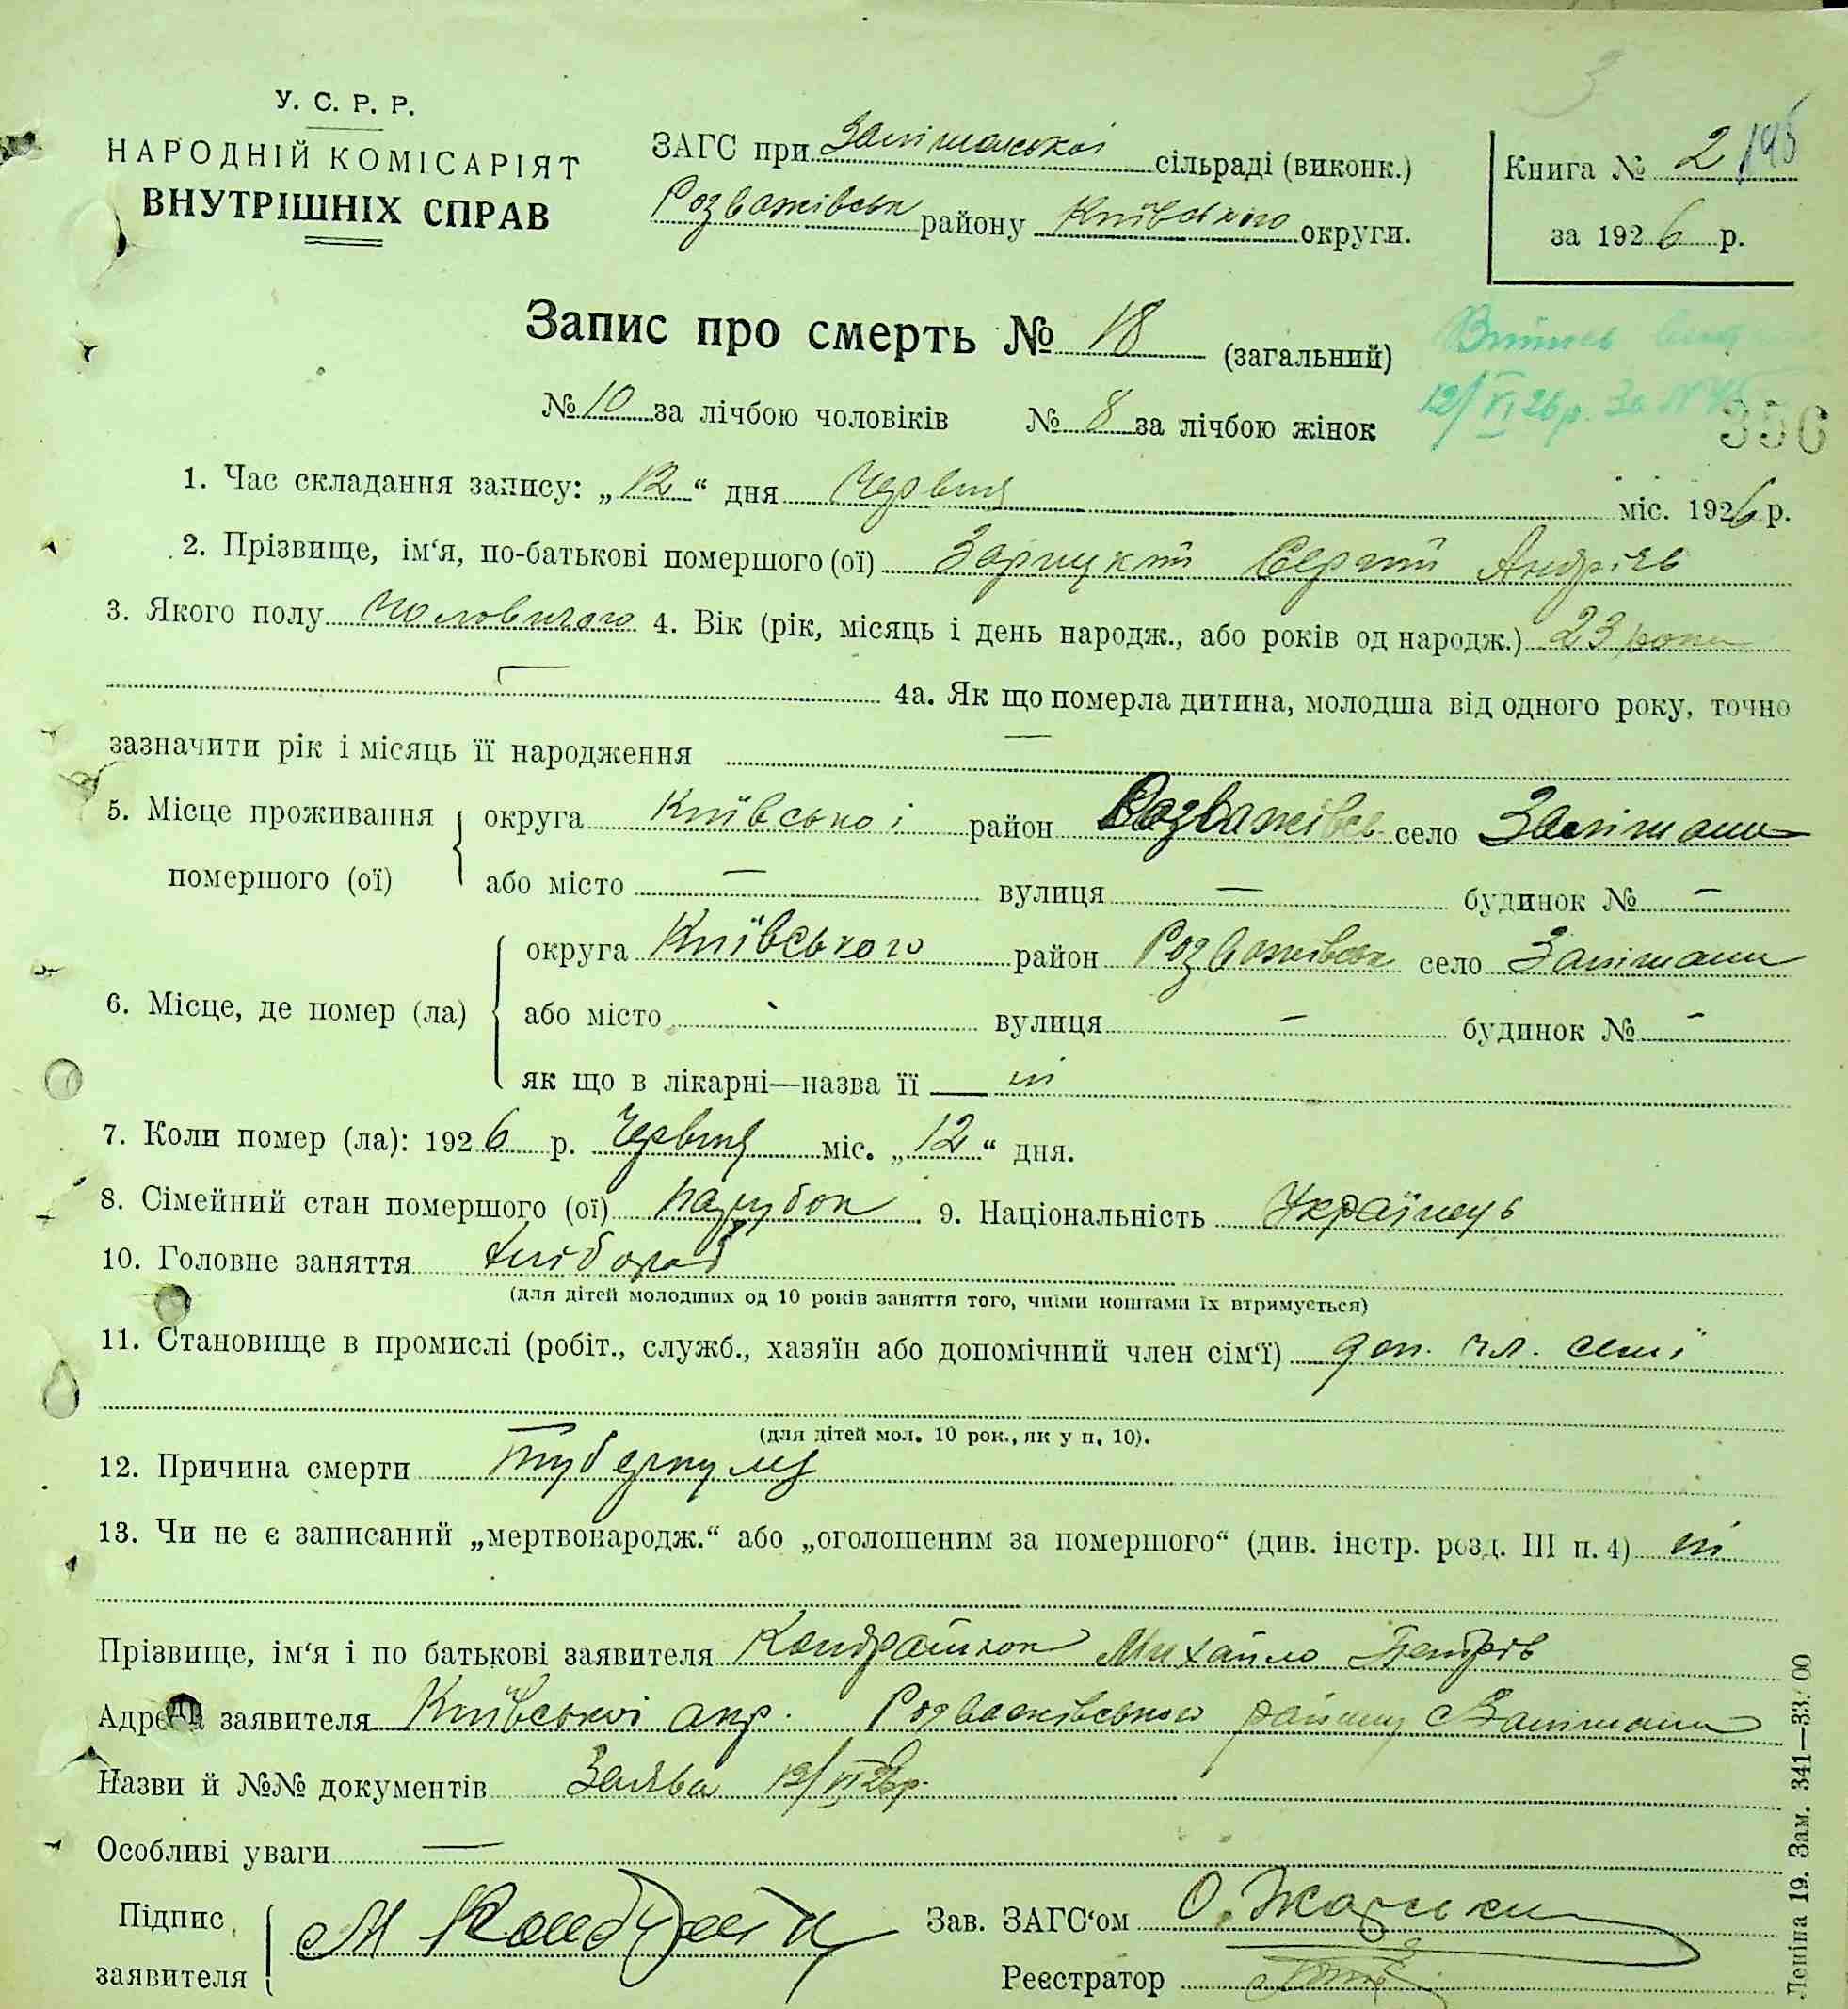 У. С. Р. Р.
НАРОДНІЙ КОМІСАРІЯТ
ВНУТРІШНІХ СПРАВ
ЗАГС при Залішанській сільраді (виконк.)
Розважівськ району Київського округи.
Книга № 2
за 1926 р.
Запис про смерть № 18 (загальний)
№ 10 за лічбою чоловіків № 8 за лічбою жінок
12/VI 26 р. За №
356
1. Час складання запису: „12“ дня Червня міс. 1926 р.
2. Прізвище, ім‘я, по-батькові помершого (ої) Зарицкий Сергій Андріїв
3. Якого полу Чоловичого 4. Вік (рік, місяць і день народж., або років од народж.) 23 роки
4а. Як що померла дитина, молодша від одного року, точно
зазначити рік і місяць її народження —
5. Місце проживання помершого (ої)
округа Київської район Розважівськ село Залішани
або місто — вулиця — будинок № —
6. Місце, де помер (ла)
округа Київського район Розважівськ село Залішани
або місто вулиця — будинок № —
як що в лікарні—назва її ні
7. Коли помер (ла): 1926 р. Червня міс. „12“ дня.
8. Сімейний стан помершого (ої) парубок 9. Національність Українець
10. Головне заняття хлібороб
(для дітей молодших од 10 років заняття того, чиїми коштами їх втримується)
11. Становище в промислі (робіт., служб., хазяїн або допомічний член сім‘ї) доп. чл. семї
(для дітей мол. 10 рок., як у п. 10).
12. Причина смерти туберкульоз
13. Чи не є записаний „мертвонародж.“ або „оголошеним за помершого“ (див. інстр. розд. III п. 4) ні
Прізвище, ім‘я і по батькові заявителя Михайло Петрів
Адреса заявителя Київської окр. Розважівського району Залішани
Назви й №№ документів Заява 12/VI 26р.
Особливі уваги —
Підпис заявителя
Зав. ЗАГС‘ом
Реєстратор
Леніна 19. Зам. 341—33.